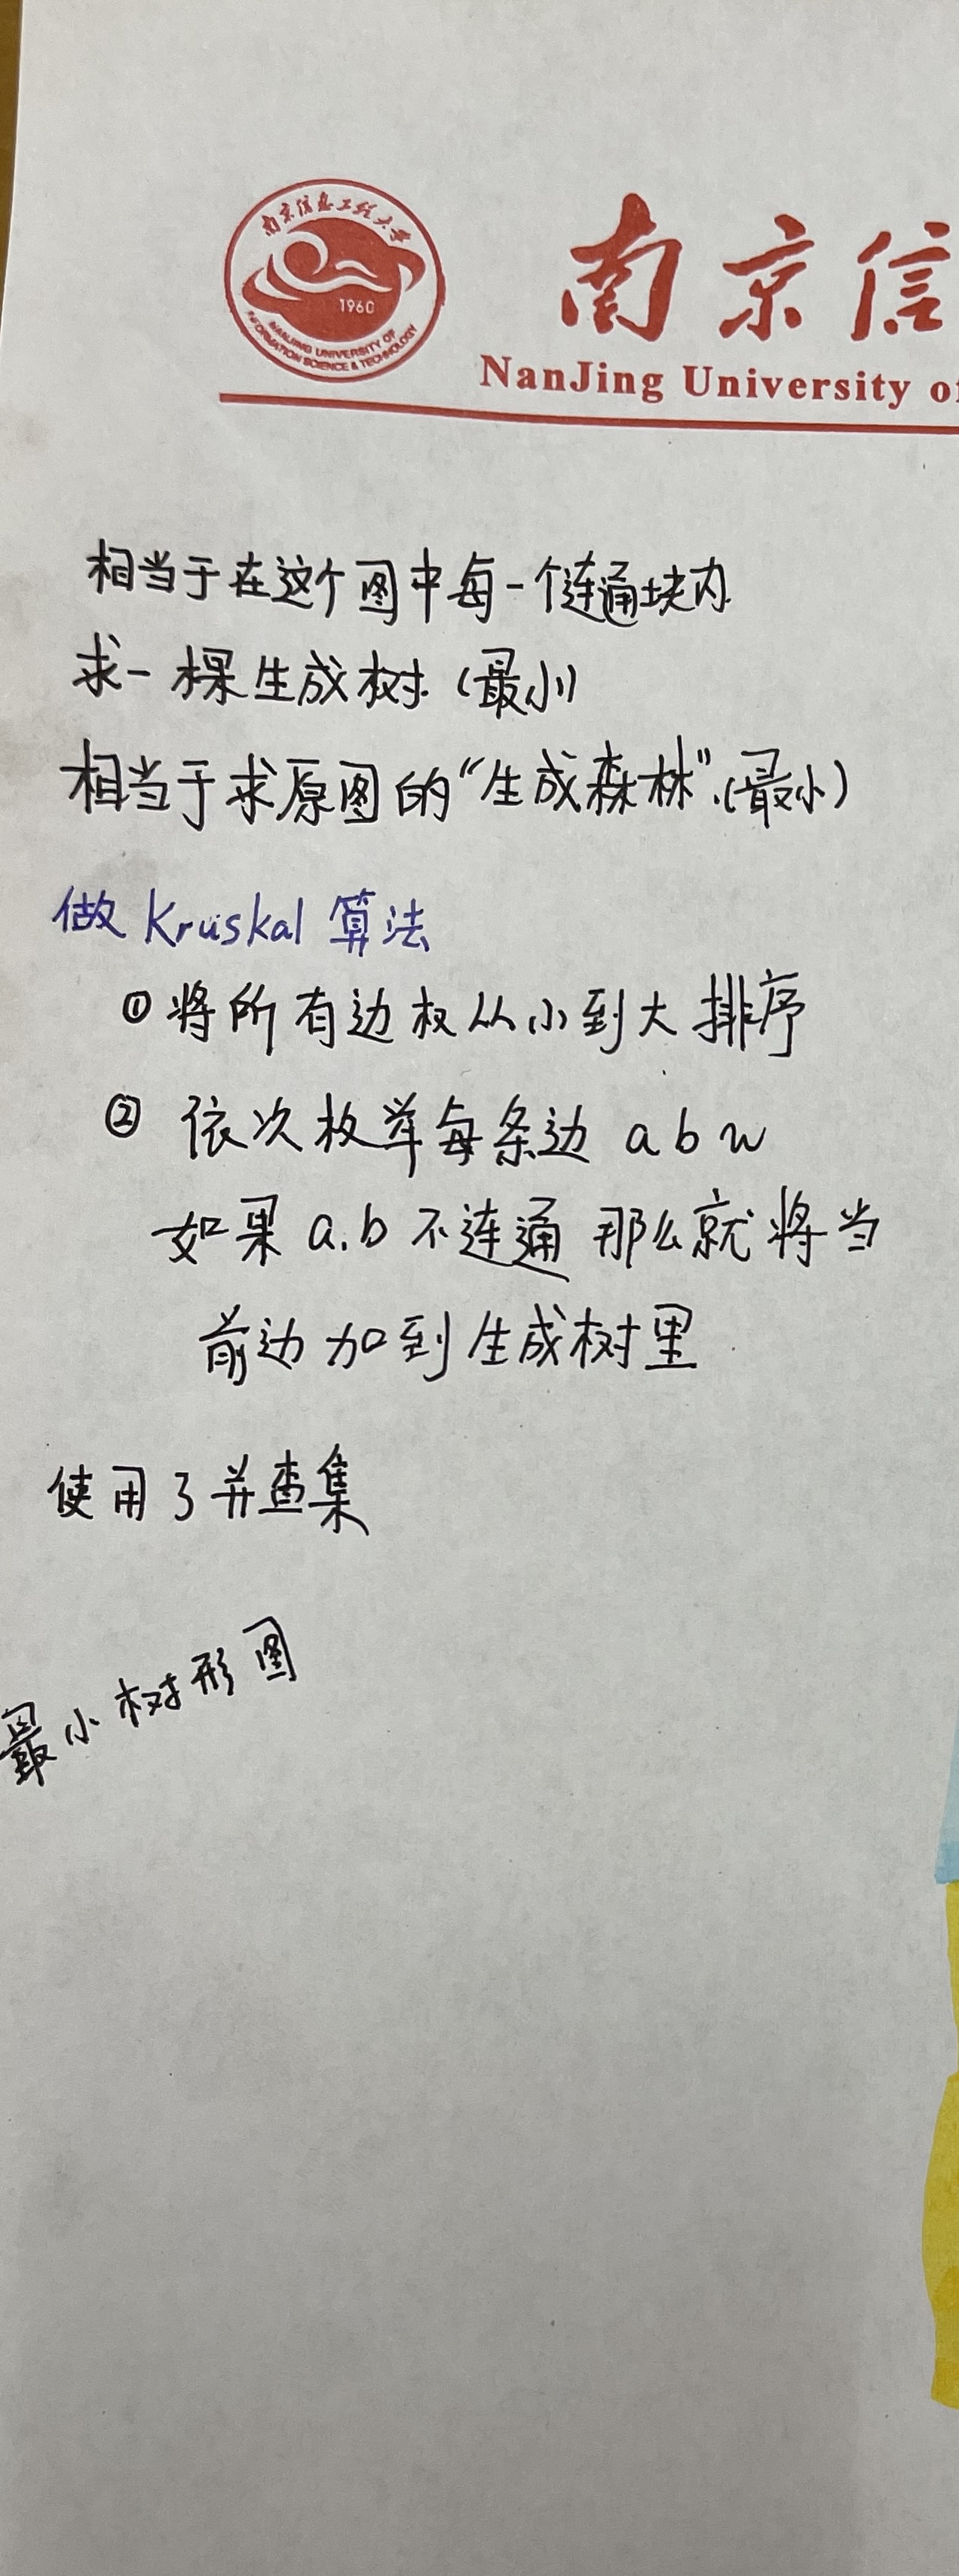 南京信息工程大学
1960
NANJING UNIVERSITY OF
INFORMATION SCIENCE & TECHNOLOGY
南京信
NanJing University of
相当于在这个图中每一个连通块内
求一棵生成树（最小）
相当于求原图的“生成森林”.（最小）
做 Kruskal 算法
① 将所有边权从小到大排序
② 依次枚举每条边 a b w
如果 a.b 不连通 那么就将当
前边加到生成树里
使用了并查集
最小树形图